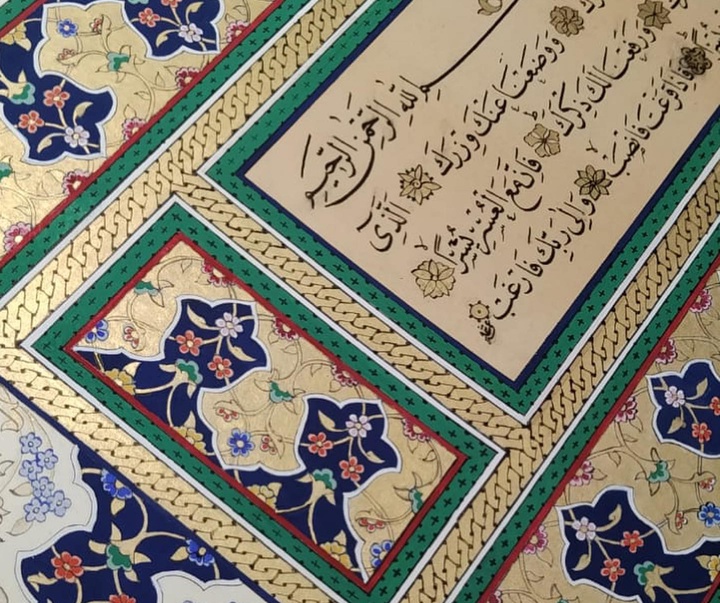 الله الرحمن الرحيم
ووضعنا عنك وزرك الذي
ورفعنا لك ذكرك فان مع العسر يسرا
فاذا فرغت فانصب والى ربك فارغب